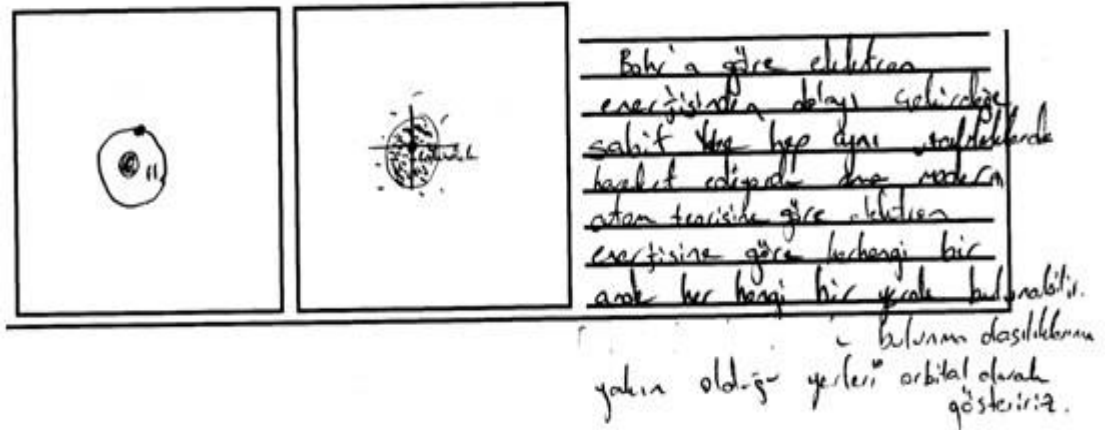 Bohr'a göre elektron
enerjisinden dolayı çekirdeğe
sabit hep aynı uzaklıklarda
hareket ediyordu ama modern
atom teorisine göre elektron
enerjisine göre herhangi bir
anda her hangi bir yerde bulunabilir.
bulunma olasılıklarına
yakın olduğu yerleri orbital olarak
gösteririz.